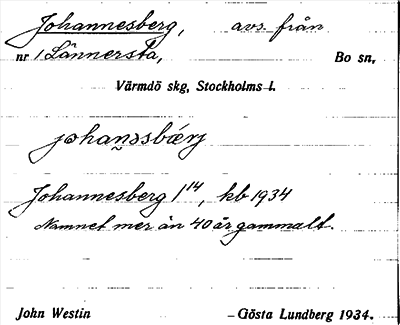 Johannesberg, avs. från
nr 1 Lännersta, Bo sn,
Värmdö skg, Stockholms l.
johan̰əsbærj
Johannesberg 1¹⁴, kb 1934
Namnet mer än 40 år gammalt.
John Westin Gösta Lundberg 1934.